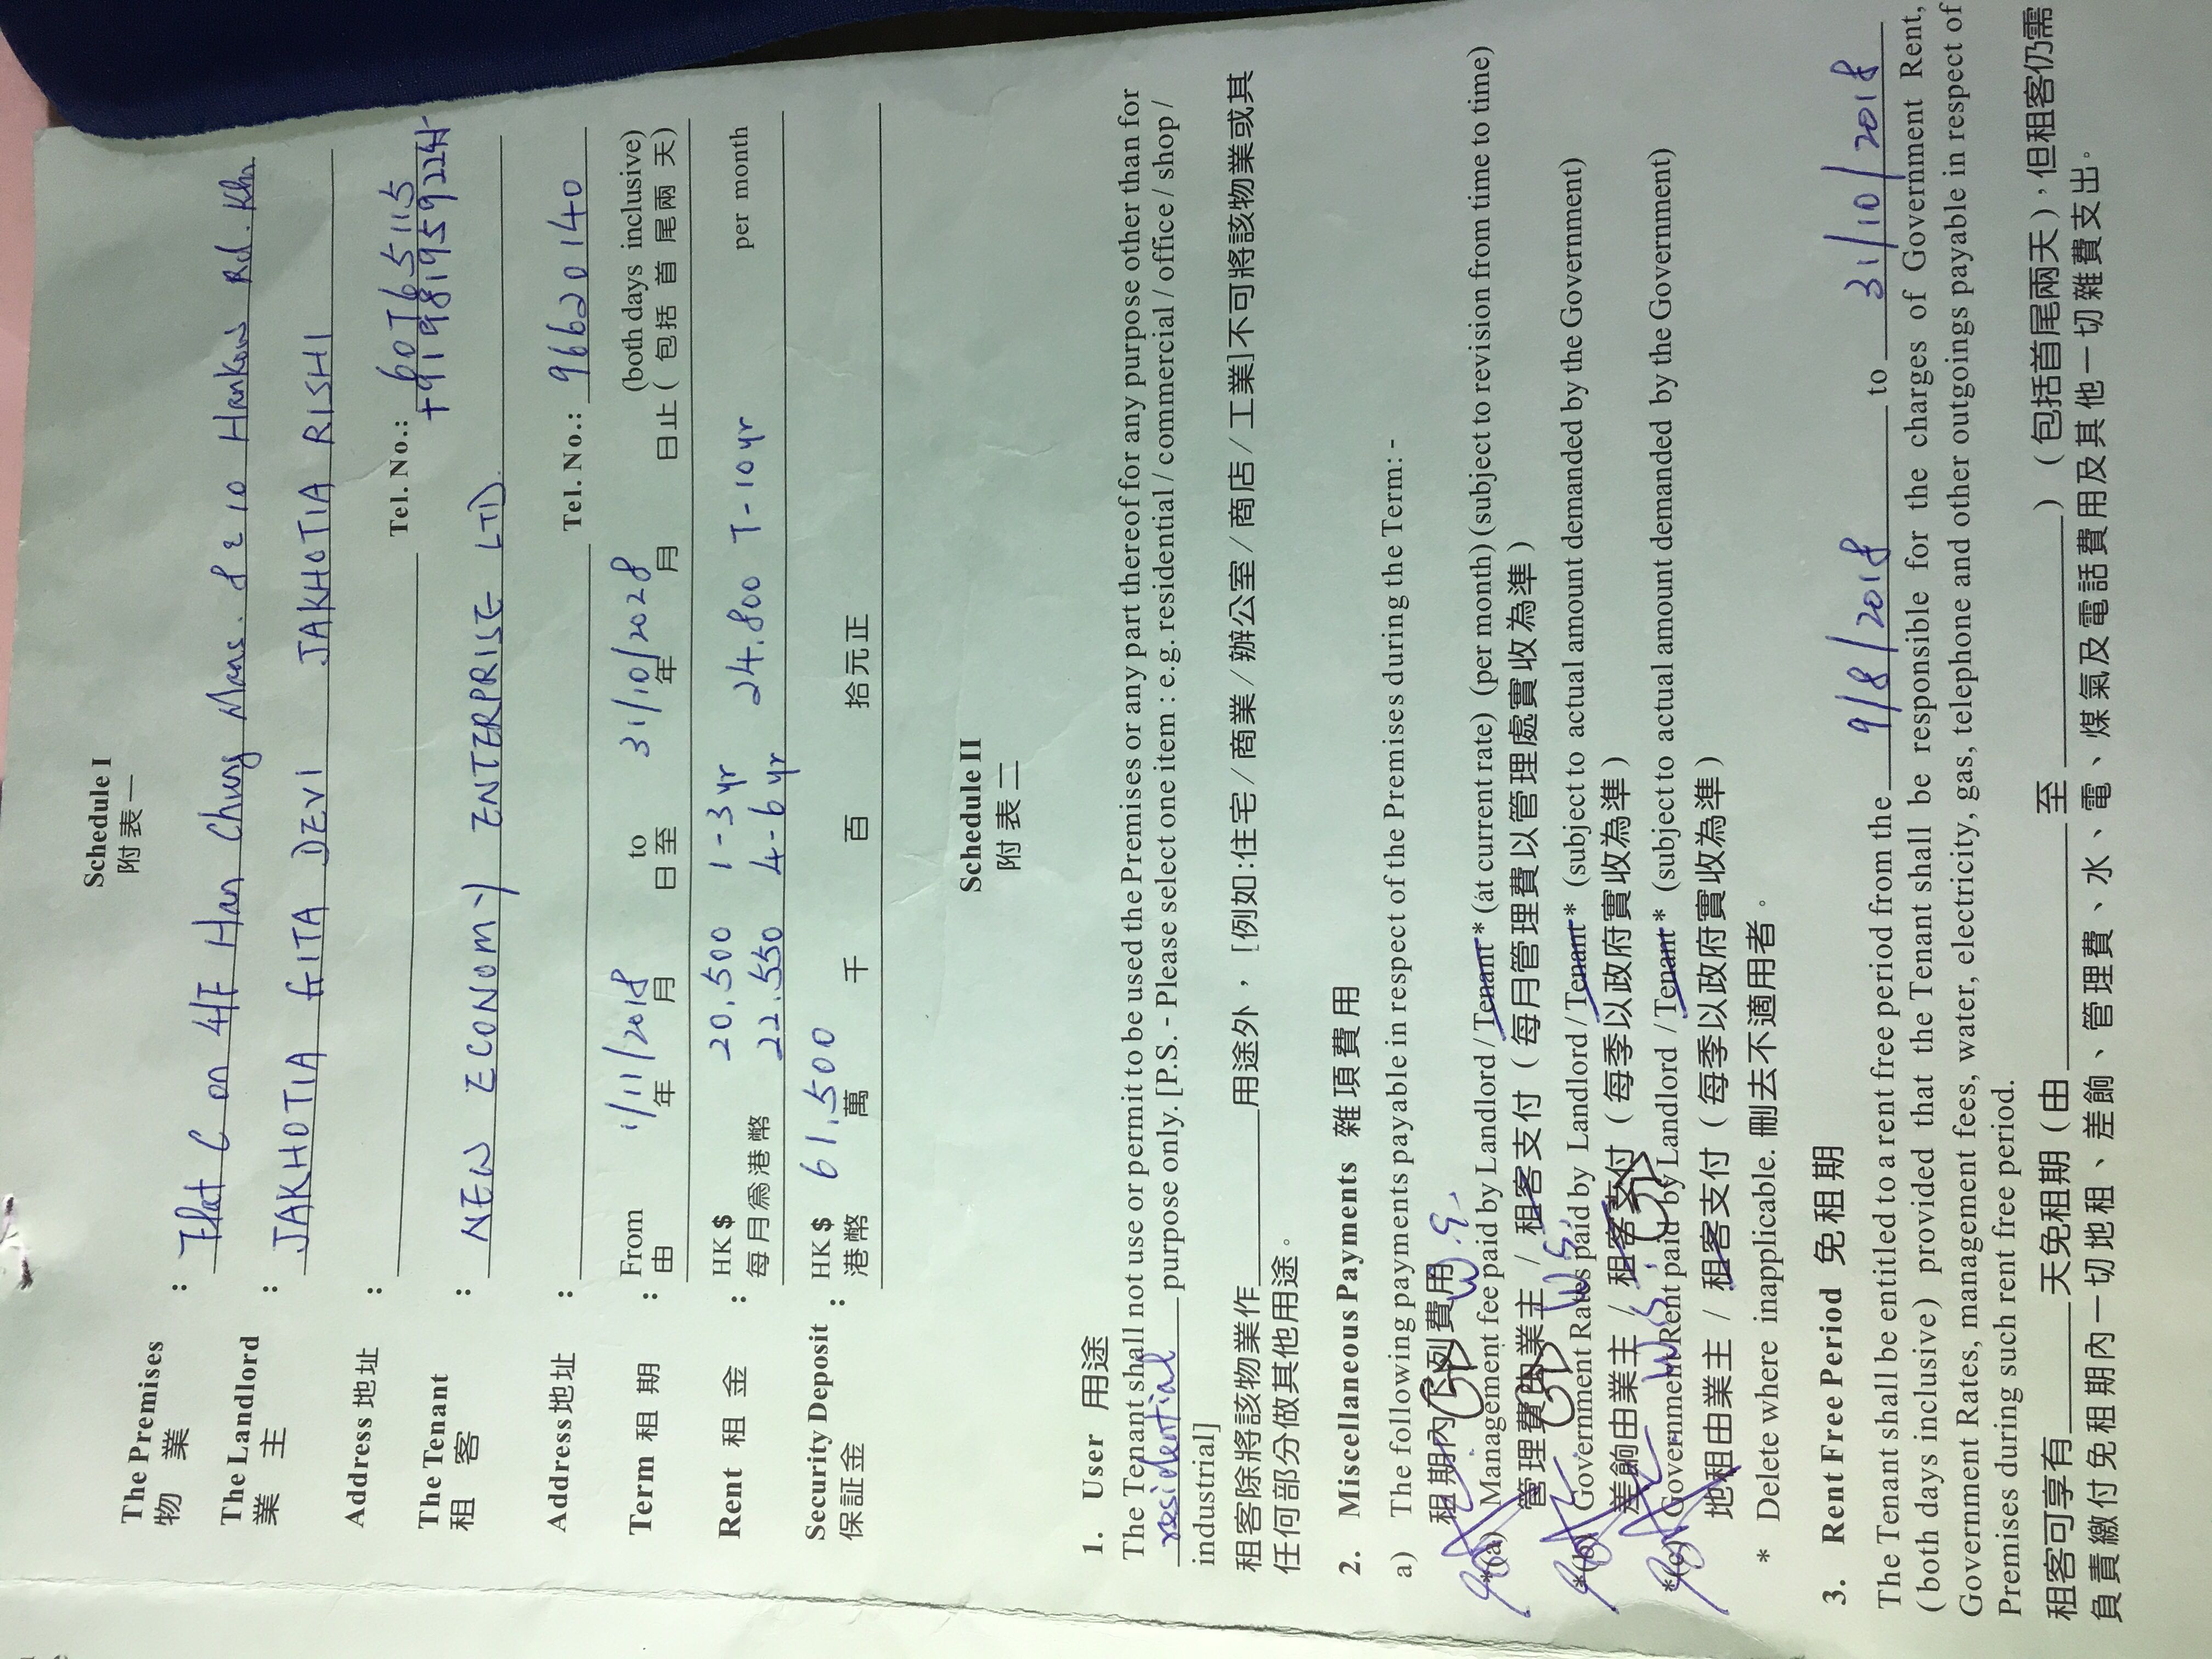 Schedule I
附表一
The Premises : Flat C on 4/F Han Chung Mans. 8 & 10 Hankow Rd. Kln
物 業
The Landlord : JAKHOTIA GITA DEVI JAKHOTIA RISHI
業 主
Address 地址 : Tel. No.: 60765115
+919819592244
The Tenant : NEW ECONOMY ENTERPRISE LTD.
租 客
Address 地址 : Tel. No.: 96620140
Term 租 期 : From 1/11/2018 to 31/10/2028 (both days inclusive)
由 年 月 日至 年 月 日止 ( 包括 首 尾兩 天)
Rent 租 金 : HK$ 20.500 1-3yr 24.800 7-10yr per month
每月為港幣 22.550 4-6yr
Security Deposit : HK$ 61.500
保証金 港幣 萬 千 百 拾元正
Schedule II
附表二
1. User 用途
The Tenant shall not use or permit to be used the Premises or any part thereof for any purpose other than for
residential purpose only. [P.S. - Please select one item : e.g. residential / commercial / office / shop /
industrial]
租客除將該物業作 用途外， [例如:住宅/商業/辦公室/商店/工業]不可將該物業或其
任何部分做其他用途。
2. Miscellaneous Payments 雜項費用
a) The following payments payable in respect of the Premises during the Term: -
租期內下列費用
*(a) Management fee paid by Landlord / Tenant * (at current rate) (per month) (subject to revision from time to time)
管理費由業主 / 租客支付 ( 每月管理費以管理處實收為準 )
*(b) Government Rates paid by Landlord / Tenant * (subject to actual amount demanded by the Government)
差餉由業主 / 租客支付 ( 每季以政府實收為準 )
*(c) Government Rent paid by Landlord / Tenant * (subject to actual amount demanded by the Government)
地租由業主 / 租客支付 ( 每季以政府實收為準 )
* Delete where inapplicable. 刪去不適用者。
3. Rent Free Period 免租期
The Tenant shall be entitled to a rent free period from the 9/8/2018 to 31/10/2018
(both days inclusive) provided that the Tenant shall be responsible for the charges of Government Rent,
Government Rates, management fees, water, electricity, gas, telephone and other outgoings payable in respect of
Premises during such rent free period.
租客可享有 天免租期 (由 至 ) ( 包括首尾兩天)，但租客仍需
負責繳付免租期內一切地租、差餉、管理費、水、電、煤氣及電話費用及其他一切雜費支出。